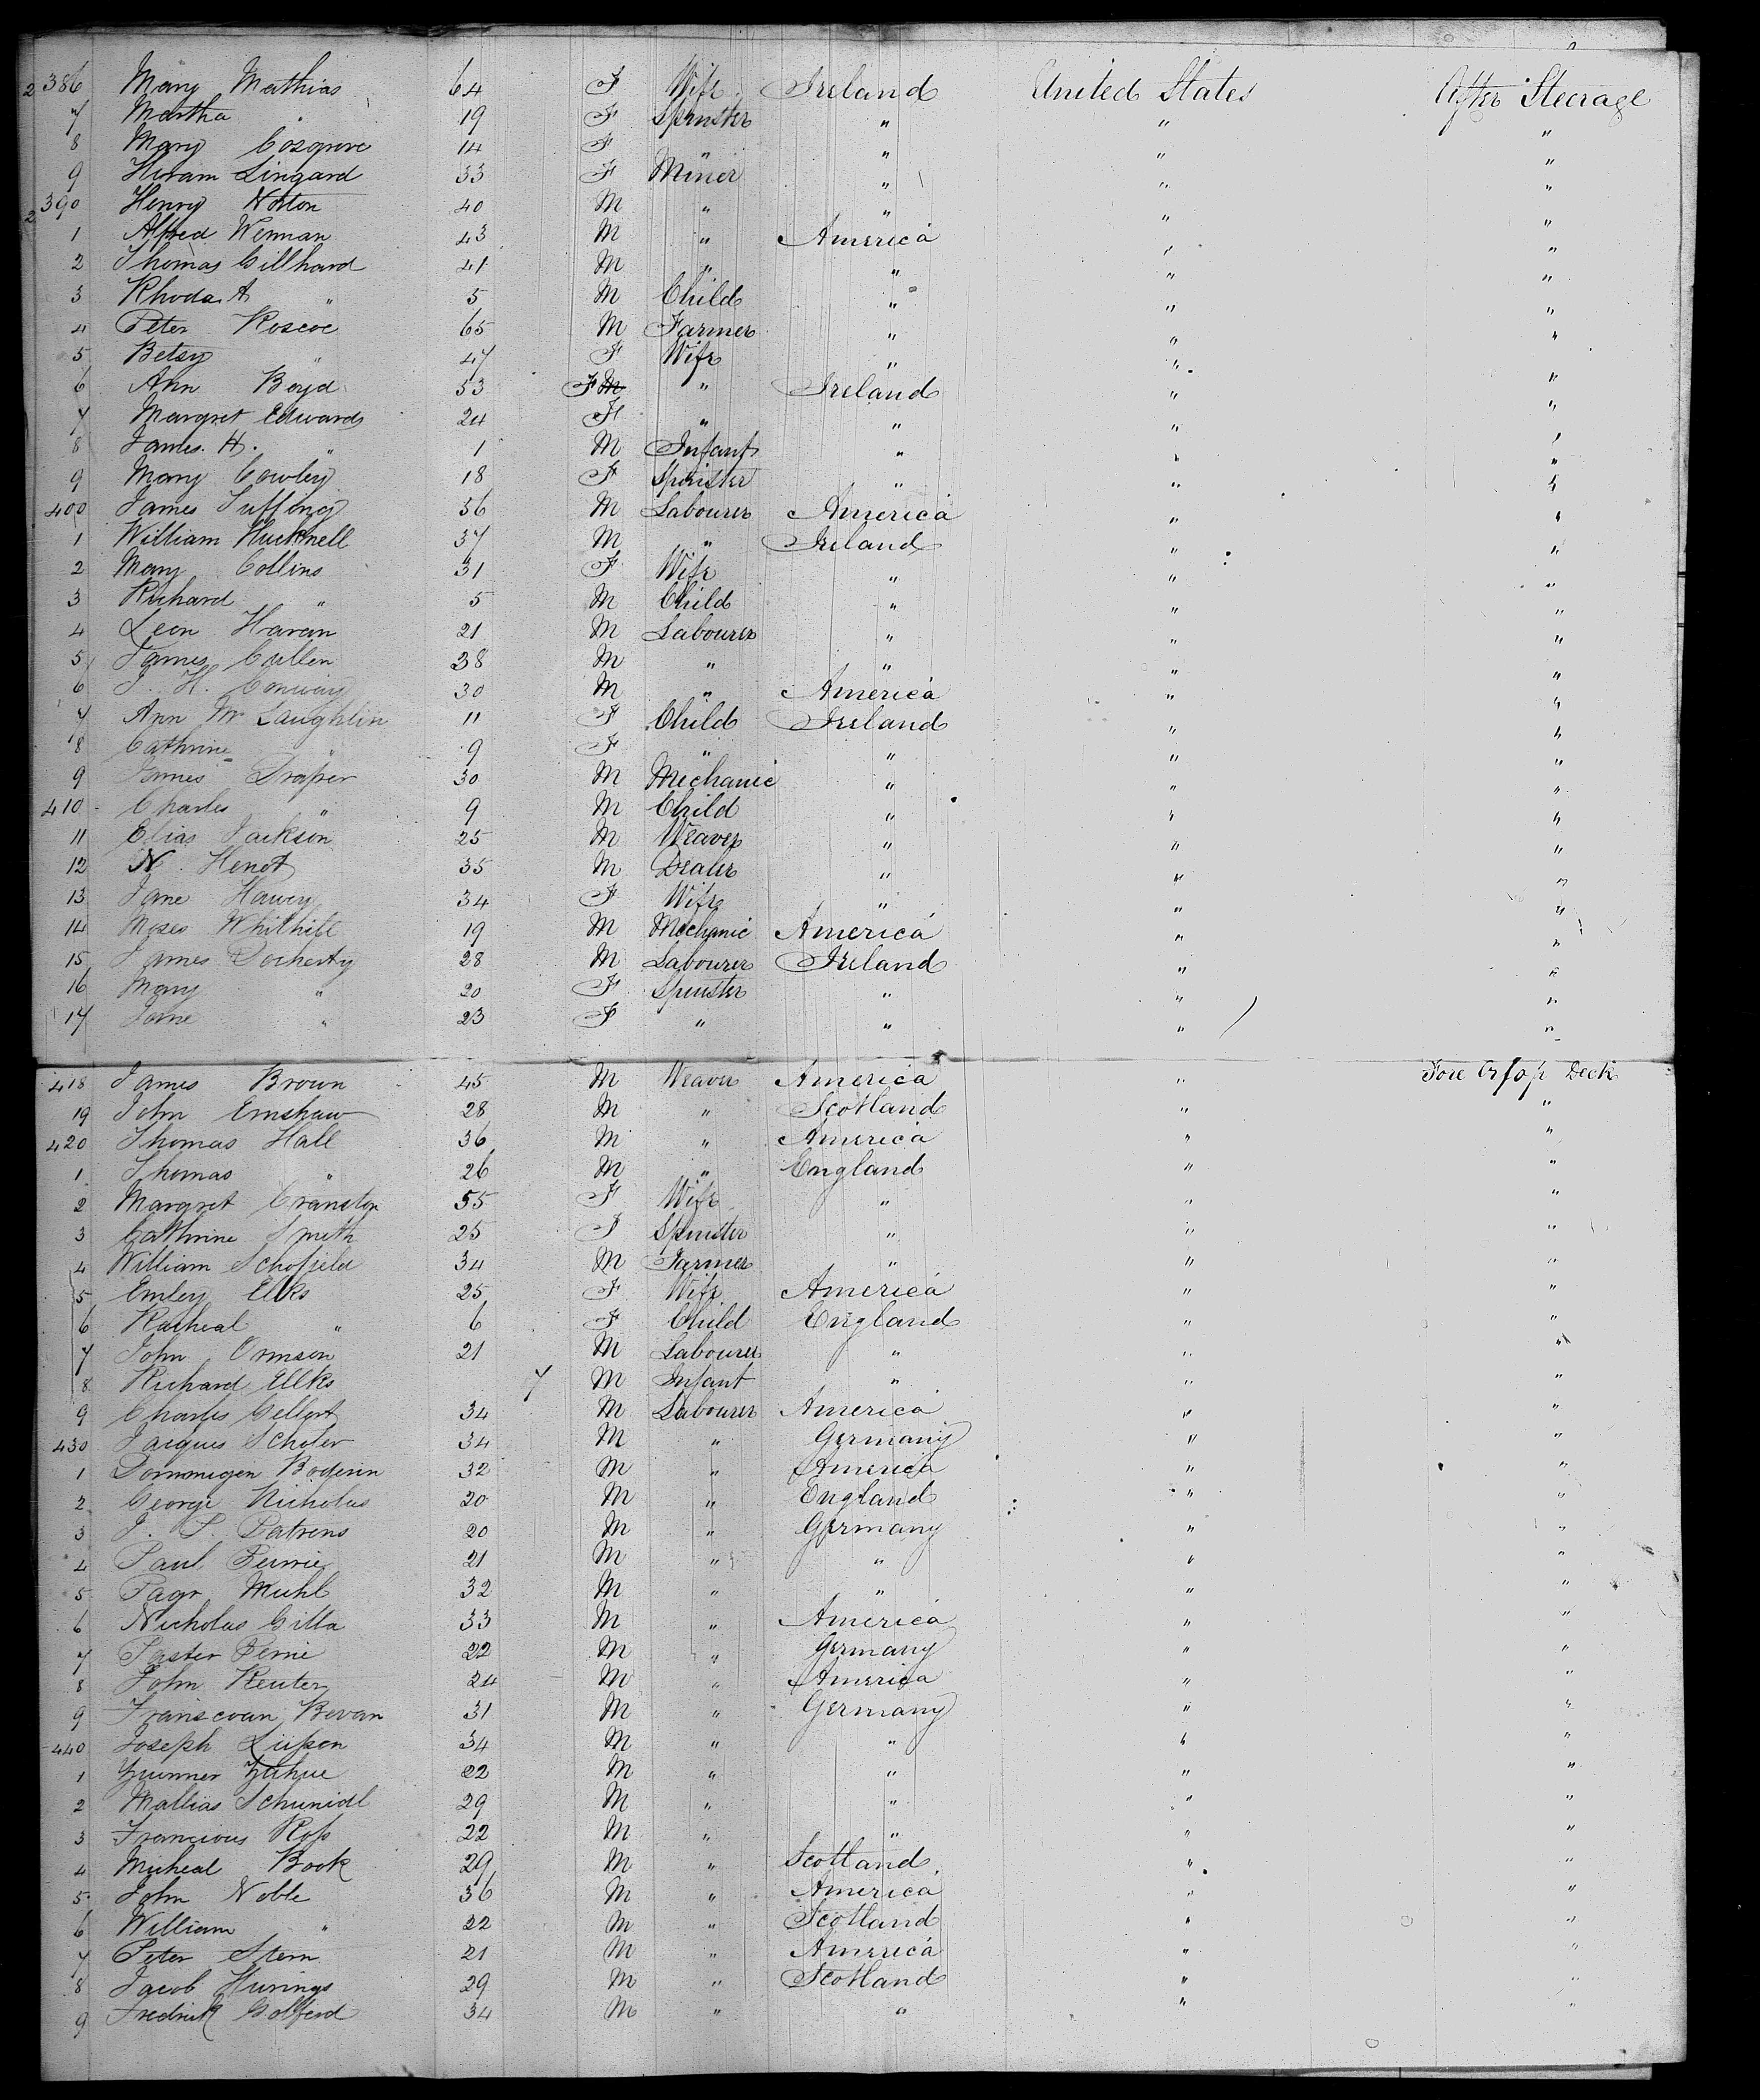 2 386 Mary Mathias 64 F Wife Ireland United States After Steerage
7 Martha " 19 F Spinster " " "
8 Mary Cosgrove 14 F " " " "
9 Hiram Lingard 33 F Miner " " "
2 390 Henry Norton 40 M " " " "
1 Alfred Wenman 43 M " America " "
2 Thomas Gillhard 41 M " " " "
3 Rhoda A " 5 M Child " " "
4 Peter Roscoe 65 M Farmer " " "
5 Betsy " 47 F Wife " " "
6 Ann Boyd 53 F M " Ireland " "
7 Margret Edwards 24 F " " " "
8 James. H. " 1 M Infant " " "
9 Mary Cowley 18 F Spinster " " "
400 James 36 M Labourer America " "
1 William Hucknell 37 M " Ireland " "
2 Mary Collins 31 F Wife " " "
3 Richard " 5 M Child " " "
4 Leon Haran 21 M Labourer " " "
5 James Cullen 38 M " " " "
6 J. H. Conway 30 M " America " "
7 Ann Mc Laughlin 11 F Child Ireland " "
8 Cathrine " 9 F " " " "
9 James Draper 30 M Mechanic " " "
410 Charles " 9 M Child " " "
11 Elias Jackson 25 M Weaver " " "
12 N. Henot 35 M Dealer " " "
13 Jane 34 F Wife " " "
14 Moses 19 M Mechanic America " "
15 James Docherty 28 M Labourer Ireland " "
16 Mary " 20 F Spinster " " "
17 Jane " 23 F " " " "
418 James Brown 45 M Weaver America " Fore Orlop Deck
19 John Ernshaw 28 M " Scotland " "
420 Thomas Hall 36 M " America " "
1 Thomas " 26 M " England " "
2 Margret Cranston 55 F Wife " " "
3 Cathrine Smith 25 F Spinster " " "
4 William Schofield 34 M Farmer " " "
5 Emley Elks 25 F Wife America " "
6 Racheal " 6 F Child England " "
7 John Ormson 21 M Labourer " " "
8 Richard Ellks 7 M Infant " " "
9 Charles Gellert 34 M Labourer America " "
430 Jacques Scholer 34 M " Germany " "
1 32 M " America " "
2 George Nicholas 20 M " England " "
3 J. 20 M " Germany " "
4 Paul 21 M " " " "
5 Muhl 32 M " " " "
6 Nicholas Gilla 33 M " America " "
7 22 M " Germany " "
8 John Reuter 24 M " America " "
9 Bevan 31 M " Germany " "
440 Joseph 34 M " " " "
1 22 M " " " "
2 29 M " " " "
3 22 M " " " "
4 Micheal Book 29 M " Scotland " "
5 John Noble 36 M " America " "
6 William " 22 M " Scotland " "
7 Peter Stern 21 M " America " "
8 Jacob 29 M " Scotland " "
9 Fredrick 34 M " " " "